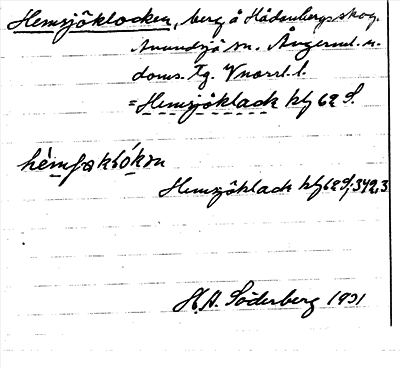 Hemsjöklocken, berg å Hådanbergs skog.
Anundsjö sn. Ångerml. n.
doms. Tg. Vnorrl. l.
= Hemsjöklack kbl 62 S.
Hemsjöklack kbl 62 S, 342,3
H.A. Söderberg 1931